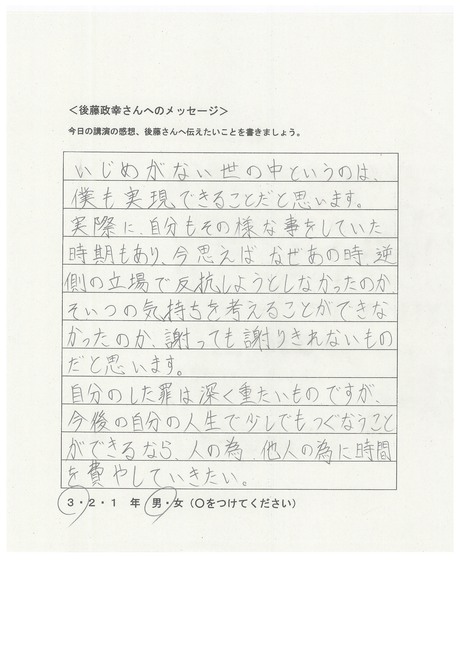 ＜後藤政幸さんへのメッセージ＞
今日の講演の感想、後藤さんへ伝えたいことを書きましょう。
いじめがない世の中というのは、
僕も実現できることだと思います。
実際に、自分もその様な事をしていた
時期もあり、今思えばなぜあの時、逆
側の立場で反抗しようとしなかったのか
そいつの気持ちを考えることができな
かったのか、謝っても謝りきれないもの
だと思います。
自分のした罪は深く重たいものですが、
今後の自分の人生で少しでもつぐなうこと
ができるなら、人の為、他人の為に時間
を費やしていきたい。
3・2・1 年 男・女（○をつけてください）